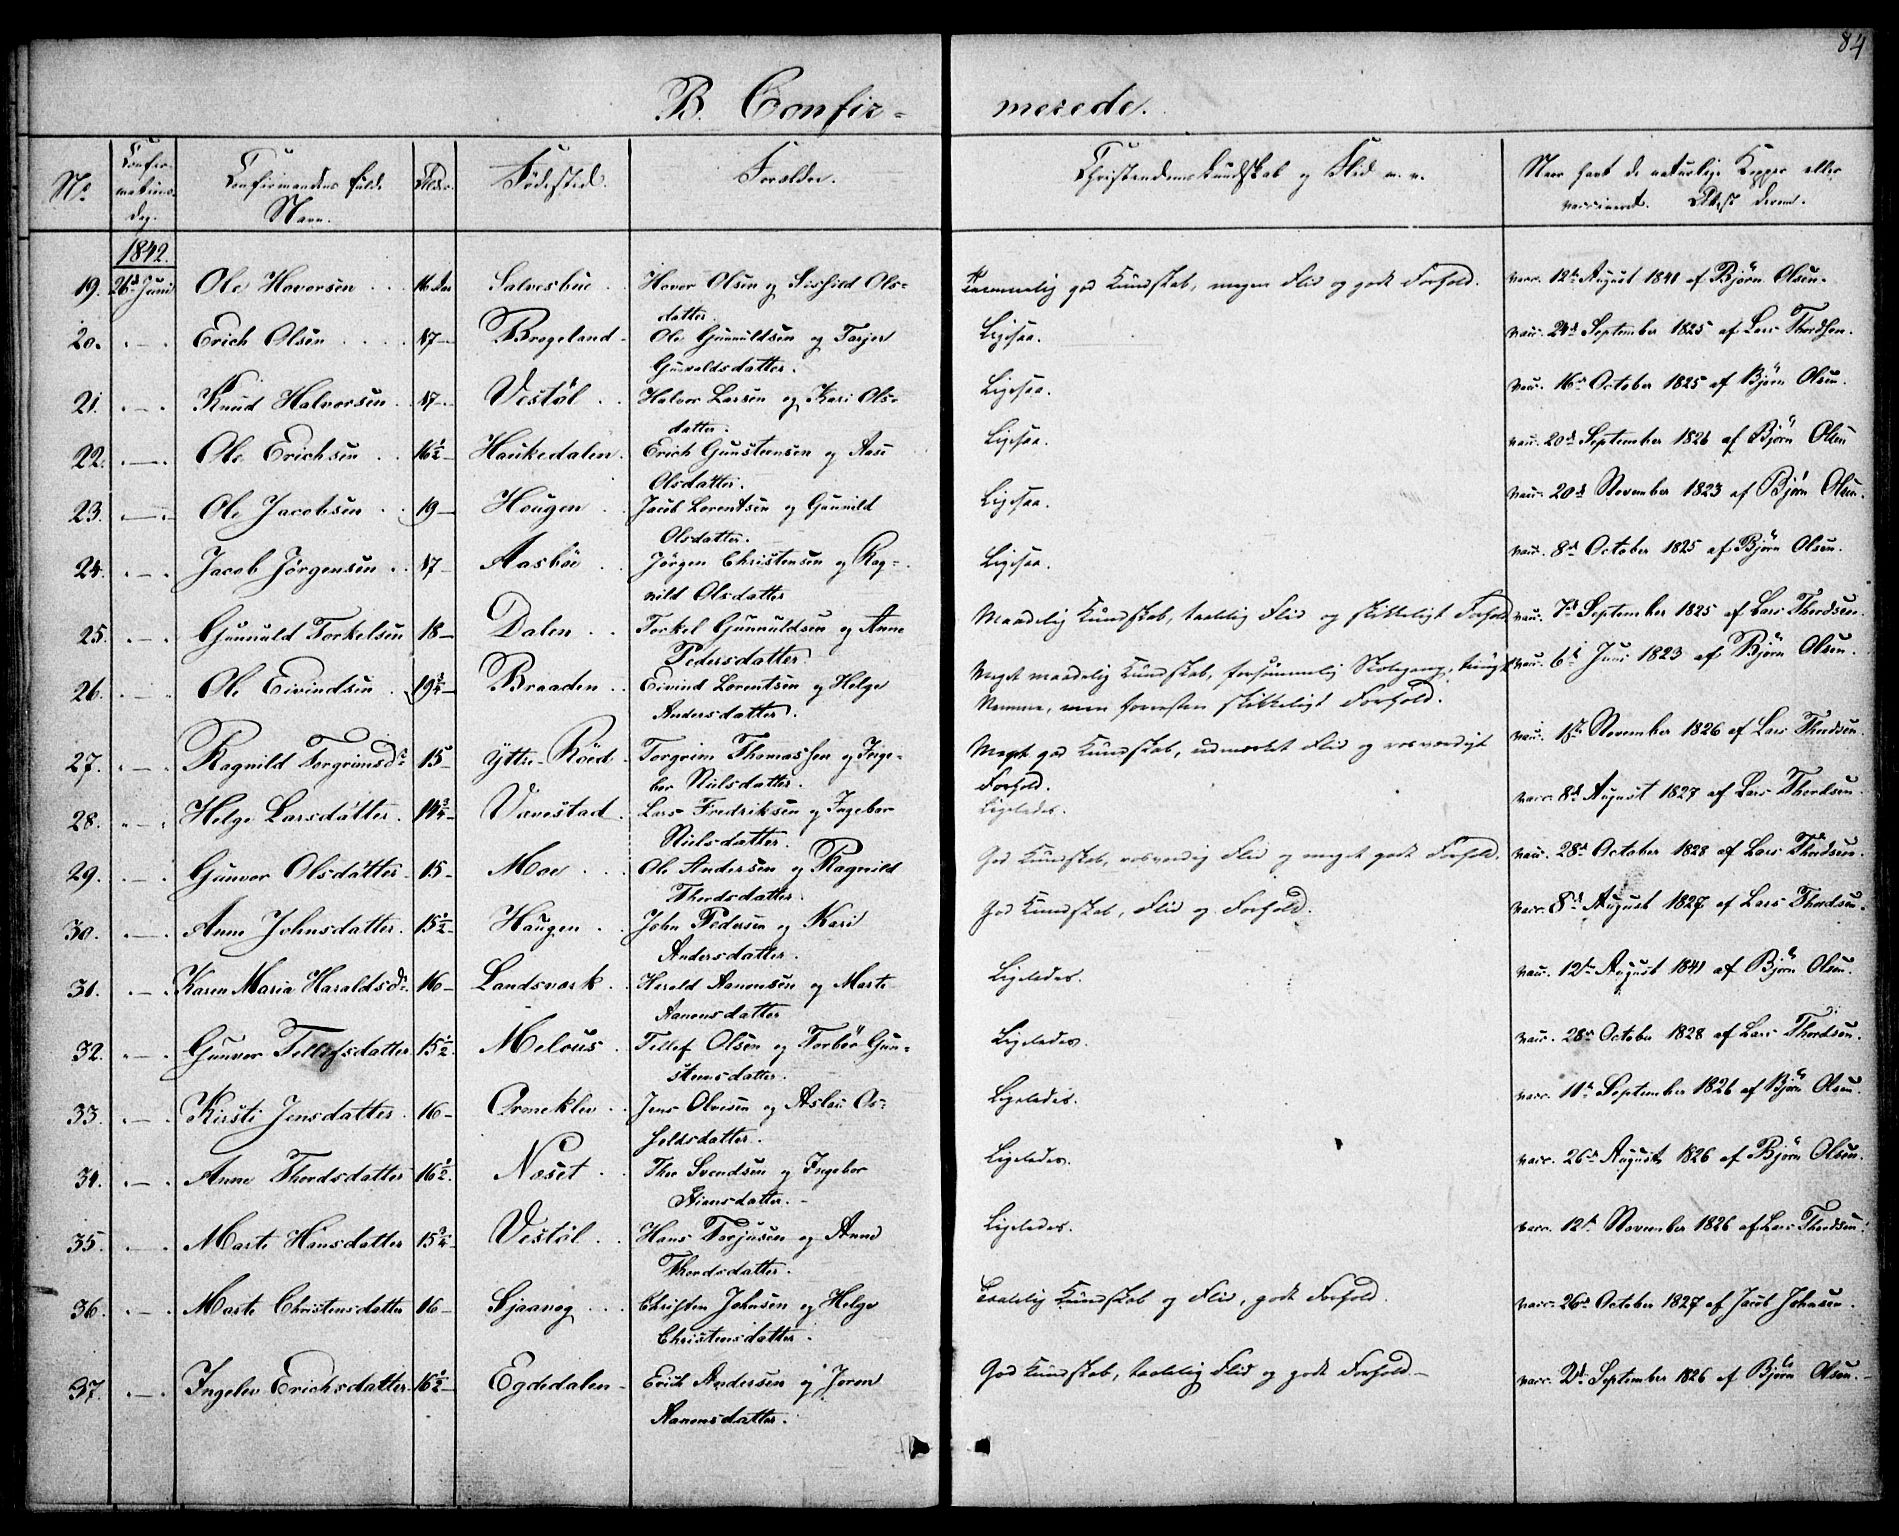 84
B. Confir- merede.
No. Confirmations Dag. Confirmandens fulde Navn. Alder. Fødested. Forældre. Christendoms Kundskab og Flid m. v. Naar havt de naturlige Kopper eller vaccineret. Attest derom.
1842.
19. 26de Juni Ole Havorsen . . . 16 Aar Salvesbue . Havor Olsen og Sigfrid Ols- Temmelig god Kundskab, megen Flid og godt Forhold. vacc. 12te August 1841 af Bjørn Olsen.
datter.
20. — Erich Olsen . . . . 17— Brageland . Ole Gunnuldsen og Tarjer Ligesaa. vacc. 24de September 1825 af Lars Thordsen.
Gunvaldsdatter.
21. — Knud Halvorsen . 17— Vestøl . . Halvor Larsen og Kari Ols- Ligesaa. vacc. 16de October 1825 af Bjørn Olsen.
datter.
22. — Ole Erichsen . . 16½— Haukedalen . Erich Gunsteensen og Aase Ligesaa. vacc. 20de September 1826 af Bjørn Olsen
Olsdatter.
23. — Ole Jacobsen . . 19— Hougen . . Jacob Lorentsen og Gunnild Ligesaa. vacc. 20de November 1823 af Bjørn Olsen.
Olsdatter.
24. — Jacob Jørgensen . . 17— Aasbøe . . Jørgen Christensen og Rag- Ligesaa. vacc. 8de October 1825 af Bjørn Olsen.
nild Olsdatter
25. — Gunnuld Torkelsen 18— Dalen . . Torkel Gunnuldsen og Anne Maadelig Kundskab, taalelig Flid og skikkeligt Forhold vacc. 7de September 1825 af Lars Thordsen.
Pedersdatter.
26. — Ole Eivindsen . 19¾— Braaden . . Eivind Lorentsen og Helge Meget maadelig Kundskab, forsømmelig Skolegang, tungt vacc. 6te Juni 1823 af Bjørn Olsen.
Andersdatter. Nemme, men forresten skikkeligt Forhold.
27. — Ragnild Torgrimsdr. 15— Yttre-Røed . Torgrim Thomassen og Inge- Meget god Kundskab, udmærket Flid og rosværdigt vacc. 15de November 1826 af Lars Thordsen.
bor Nielsdatter. Forhold.
28. — Helge Larsdatter . 14¾— Vævestad . Lars Fredriksen og Ingebor Ligeledes. vacc. 8de August 1827 af Lars Thordsen.
Nielsdatter.
29. — Gunvor Olsdatter . 15— Moe . . . Ole Andersen og Ragnild God Kundskab, rosværdig Flid og meget godt Forhold. vacc. 28de October 1828 af Lars Thordsen.
Thordsdatter.
30. — Anne Johnsdatter . 15½— Haugen . . John Pedersen og Kari God Kundskab, Flid og Forhold. vacc. 8de August 1827 af Lars Thordsen.
Andersdatter.
31. — Karen Maria Haraldsdr. 16— Landsværk . Harald Aanonsen og Marte Ligeledes. vacc. 12te August 1841 af Bjørn Olsen.
Aanonsdatter
32. — Gunvor Tellefsdatter 15½. Melaus . Tellef Olsen og Torbør Gun- Ligeledes. vacc. 28de October 1828 af Lars Thordsen.
stensdatter.
33. — Kirsti Jensdatter . 16— Ormeklev . . Jens Olvesen og Aslau Os- Ligeledes. vacc. 11te September 1826 af Bjørn Olsen.
joldsdatter.
34. — Anne Thordsdatter 16½. Næset . Thor Svendsen og Ingebor Ligeledes. vacc. 26de August 1826 af Bjørn Olsen.
35. — Marte Hansdatter 15¾— Vestøl . Hans Tarjusen og Anne Ligeledes. vacc. 12te November 1826 af Lars Thordsen.
Thordsdatter.
36. — Marte Christensdatter 16— Sjaavaag . . . Christen Johnsen og Helge Taalelig Kundskab og Flid, godt Forhold. vacc. 26de October 1827 af Jacob Johnsen.
Christensdatter.
37. — Ingelev Erichsdatter. 16½— Egdedalen . Erich Andersen og Joren God Kundskab, taalelig Flid og godt Forhold. — vacc. 2de September 1826 af Bjørn Olsen. —
Aanonsdatter.